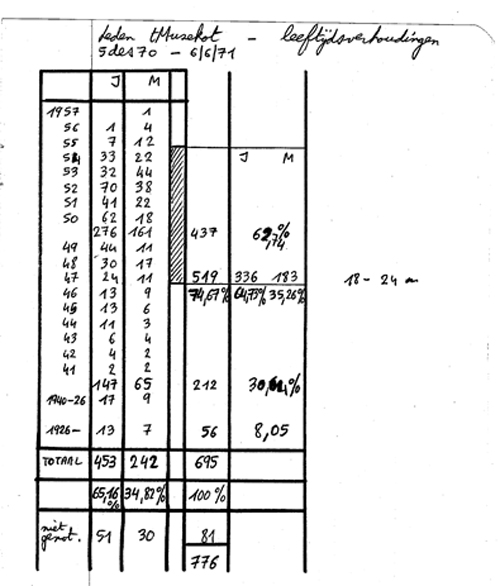 Leden tMusekot - leeftijdsverhoudingen
5 des 70 - 6/6/71
J M
1957 1
56 1 4
55 7 12
54 33 22 J M
53 32 44
52 70 38
51 41 22
50 62 18
276 161 437 62,74 %
49 44 11
48 30 17
47 24 11 519 336 183 18 - 24
46 13 9 74,67% 64,73% 35,26%
45 13 6
44 11 3
43 6 4
42 4 2
41 2 2
147 65 212 %
1940-26 17 9
1926- 13 7 56 8,05
TOTAAL 453 242 695
65,16 % 34,82% 100 %
niet genot. 51 30 81
776